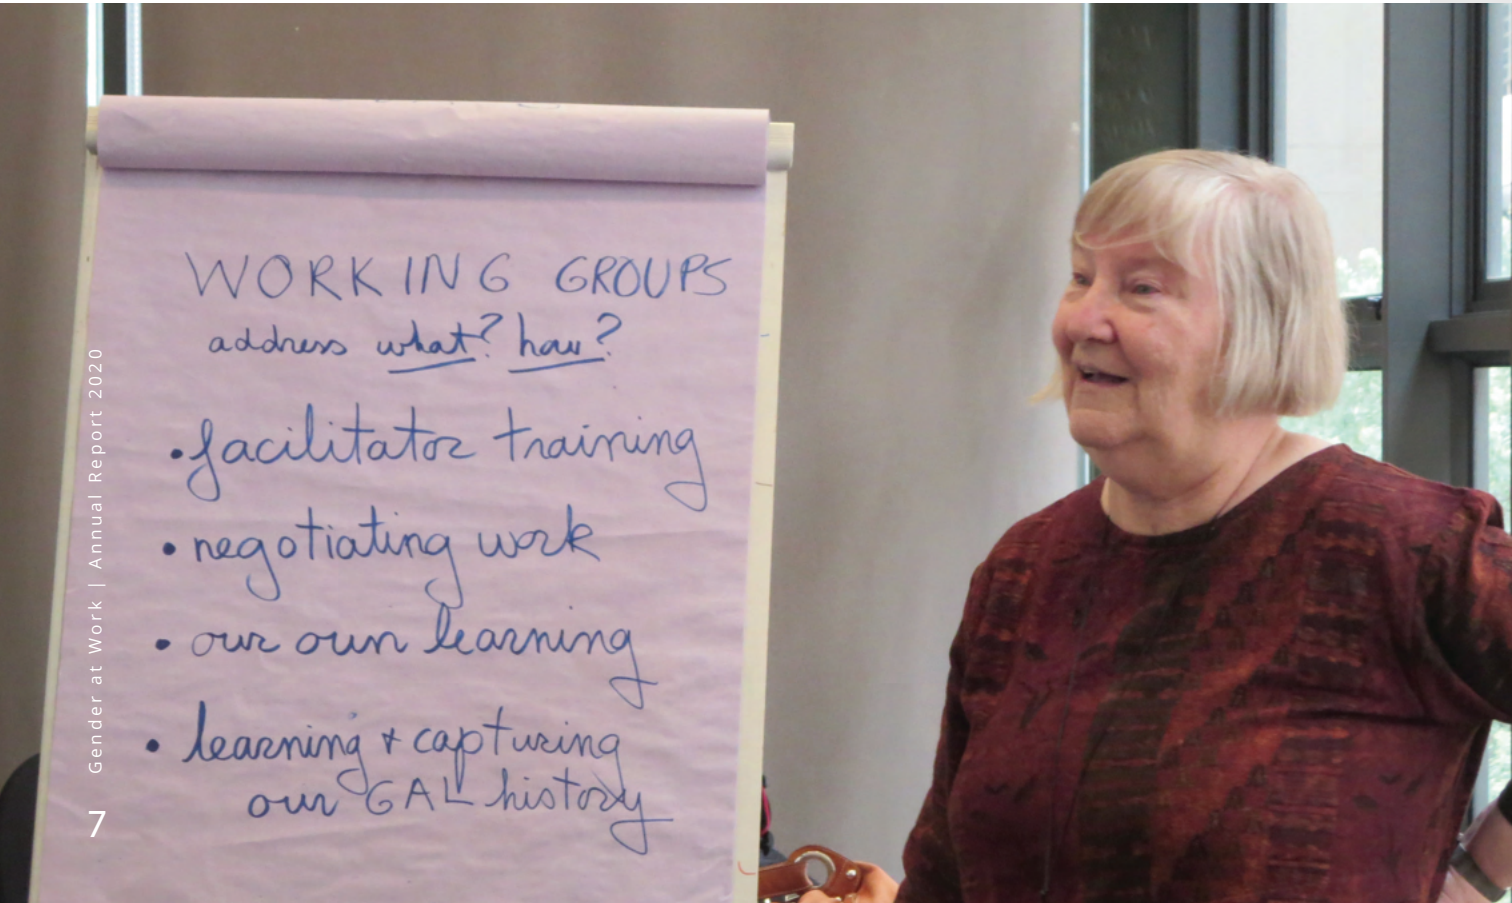 WORKING GROUPS
address what? how?
• facilitator training
• negotiating work
• our own learning
• learning + capturing
our GAL history
Gender at Work | Annual Report 2020
7